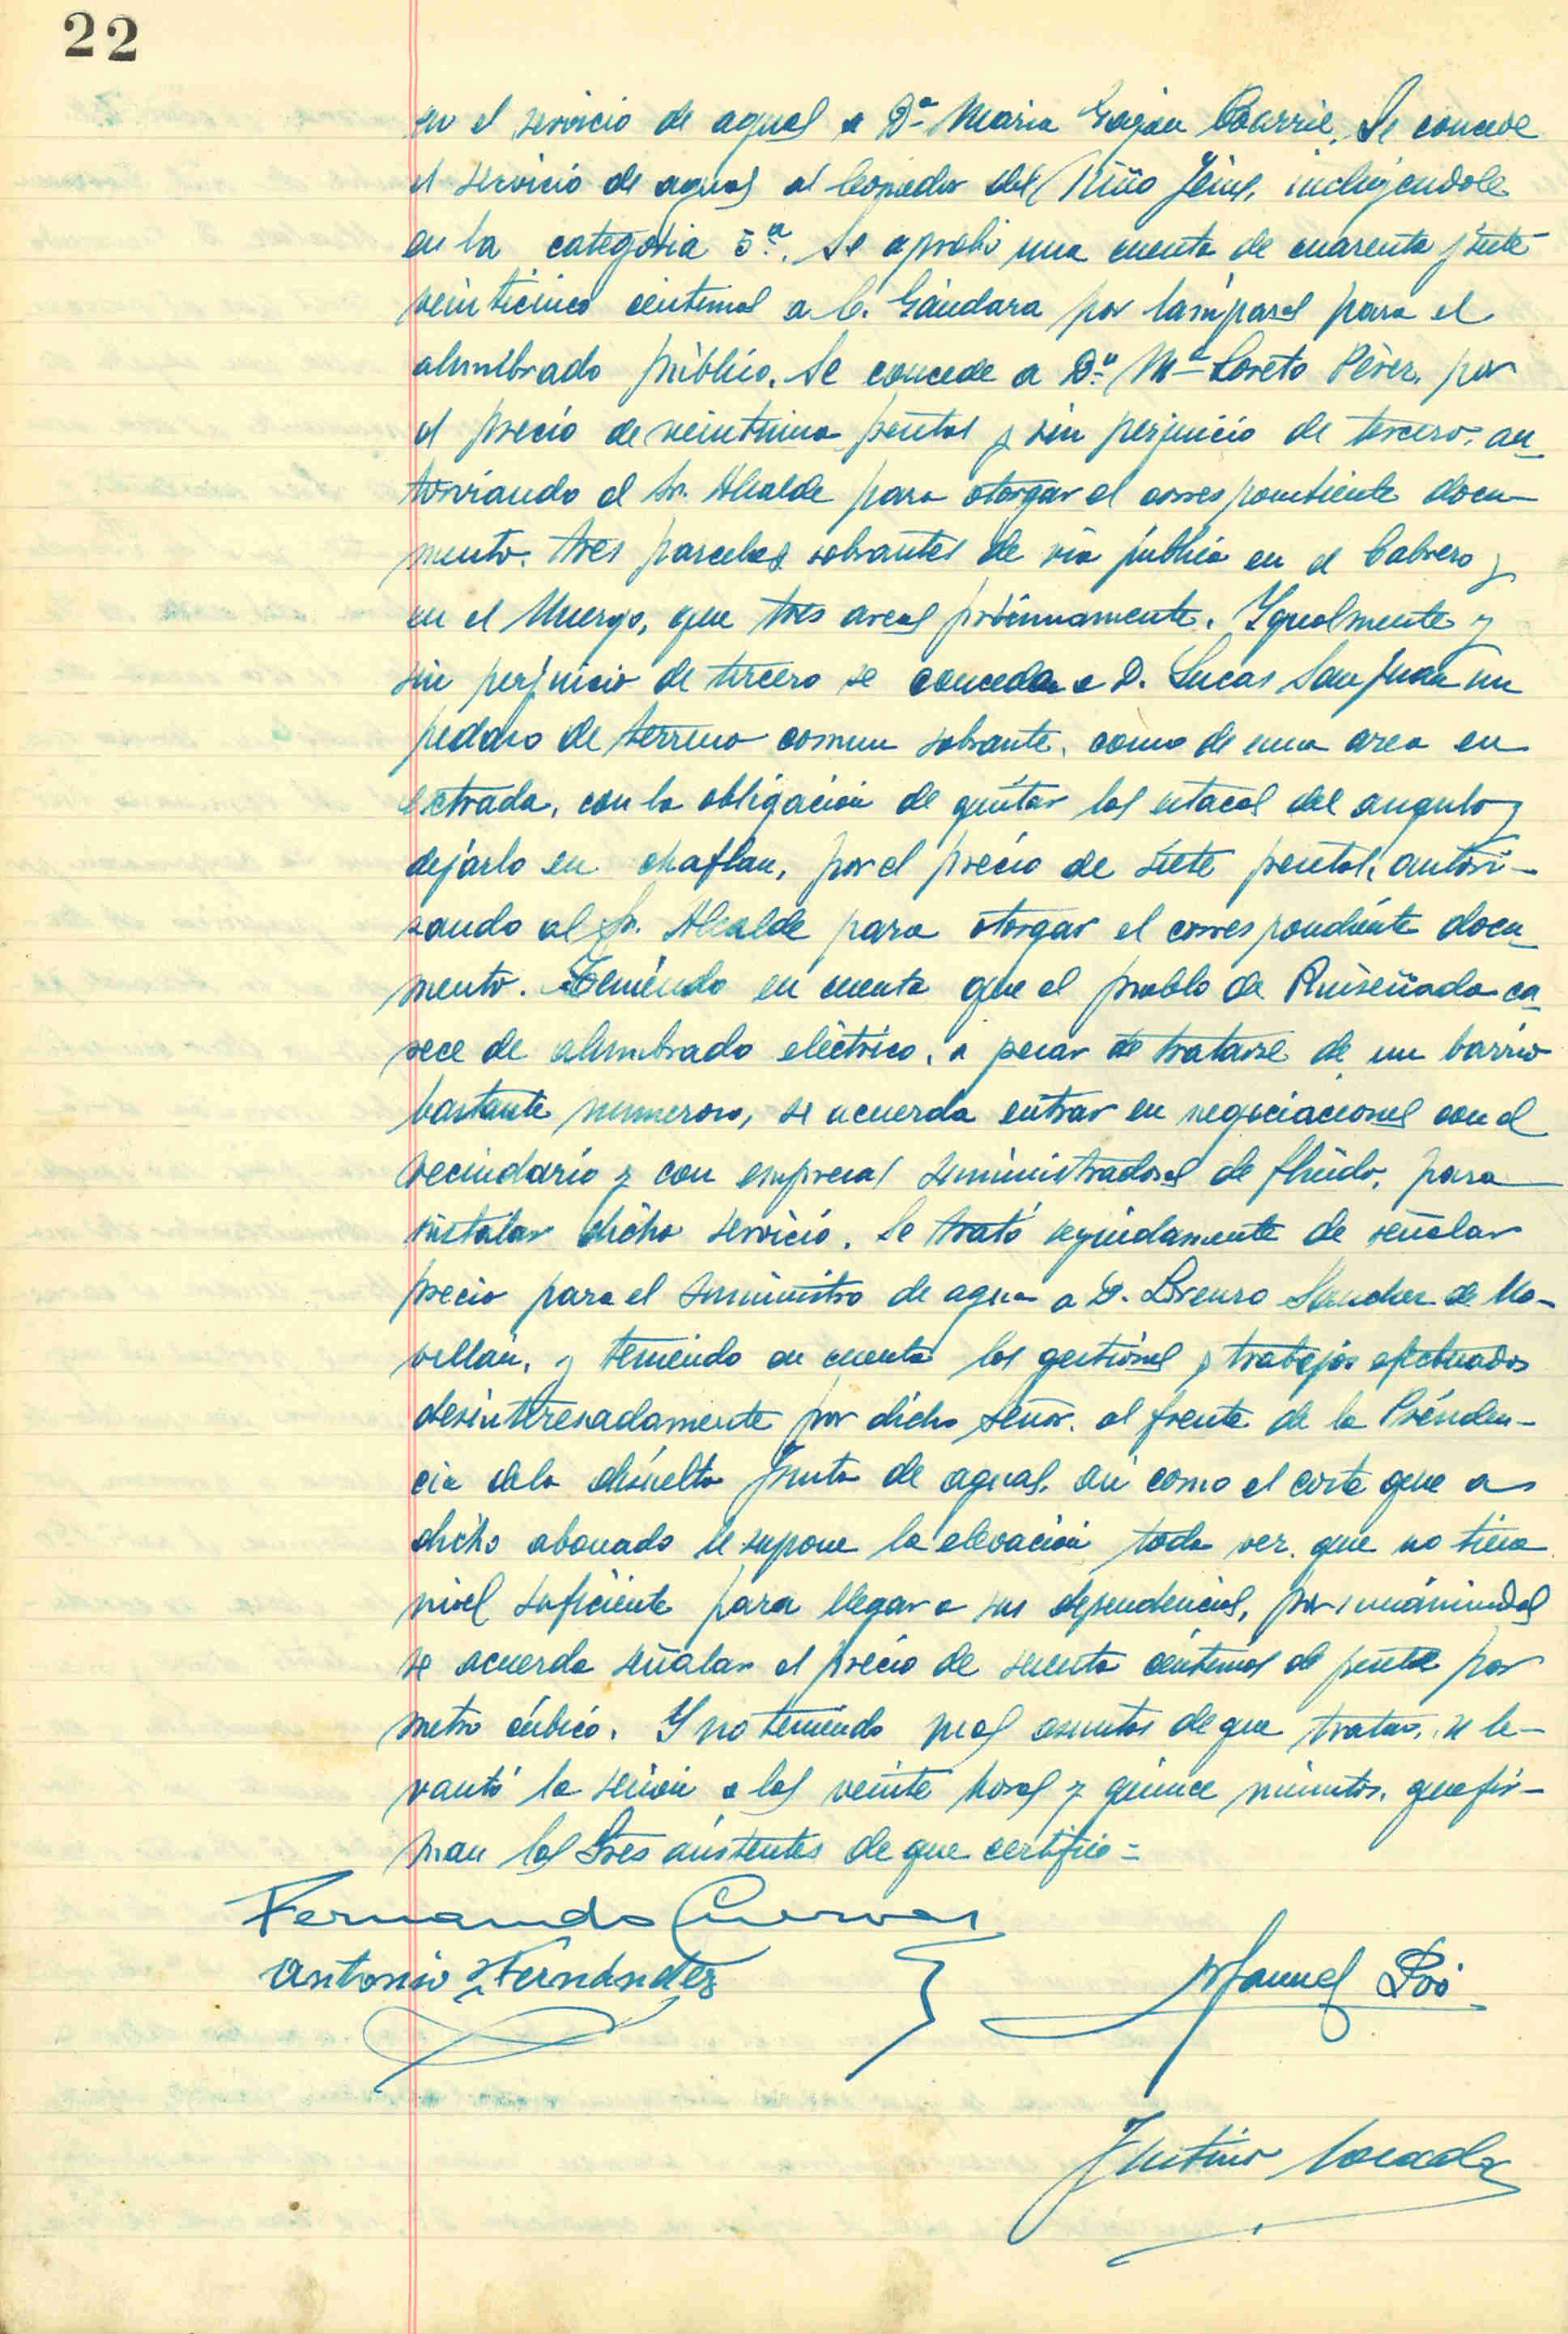 22
en el servicio de aguas a Dª Maria Gayón Barrie. Se concede
el servicio de aguas al Comedor del Niño Jesus, incluyendole
en la categoria 5ª. Se aprobó una cuenta de cuarenta ptas
veinticinco centimos a C. Gándara por lámparas para el
alumbrado público. Se concede a Dª Mª Loreto Pérez, por
el precio de veintiuna pesetas y sin perjuicio de tercero, au-
torizando al Sr. Alcalde para otorgar el correspondiente docu-
mento, tres parcelas sobrantes de via pública en el Cabrero y
en el Muergo, que tres areas próximamente. Igualmente y
sin perjuicio de tercero se concede a D. Lucas San Juan un
pedazo de terreno comun sobrante, como de una area en
estrada, con la obligación de quitar las estacas del angulo y
dejarlo en chaflan, por el precio de siete pesetas, autori-
zando al Sr. Alcalde para otorgar el correspondiente docu-
mento. Teniendo en cuenta que el pueblo de Ruiseñada ca-
rece de alumbrado eléctrico, a pesar de tratarse de un barrio
bastante numeroso, se acuerda entrar en negociaciones con el
vecindario y con empresas suministradoras de flúido, para
instalar dicho servicio. Se trató seguidamente de señalar
precio para el suministro de agua a D. Lorenzo Sanchez de Mo-
vellán, y teniendo en cuenta las gestiones y trabajos efectuados
desinteresadamente por dicho señor, al frente de la Presiden-
cia de la disuelta Junta de aguas, asi como el coste que a
dicho abonado le supone la elevación toda vez que no tiene
nivel suficiente para llegar a sus dependencias, por unanimidad
se acuerda señalar el precio de sesenta céntimos de peseta por
metro cúbico. Y no teniendo mas asuntos de que tratar, se le-
vantó la sesión a las veinte horas y quince minutos, que fir-
man los Sres asistentes de que certifico =
Fernando Cuevas
Antonio Fernández
Manuel Poó
Justino Losada